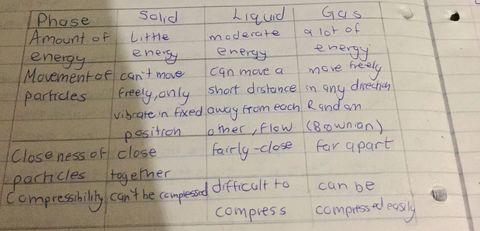 Phase Solid Liquid Gas
Amount of Little moderate a lot of
energy energy energy energy
Movement of can't move can move a move freely
particles freely, only short distance in any direction
vibrate in fixed away from each Randon
position other, flow (Brownian)
Closeness of close fairly-close far apart
particles together
Compressibility can't be compressed difficult to can be
compress compressed easily